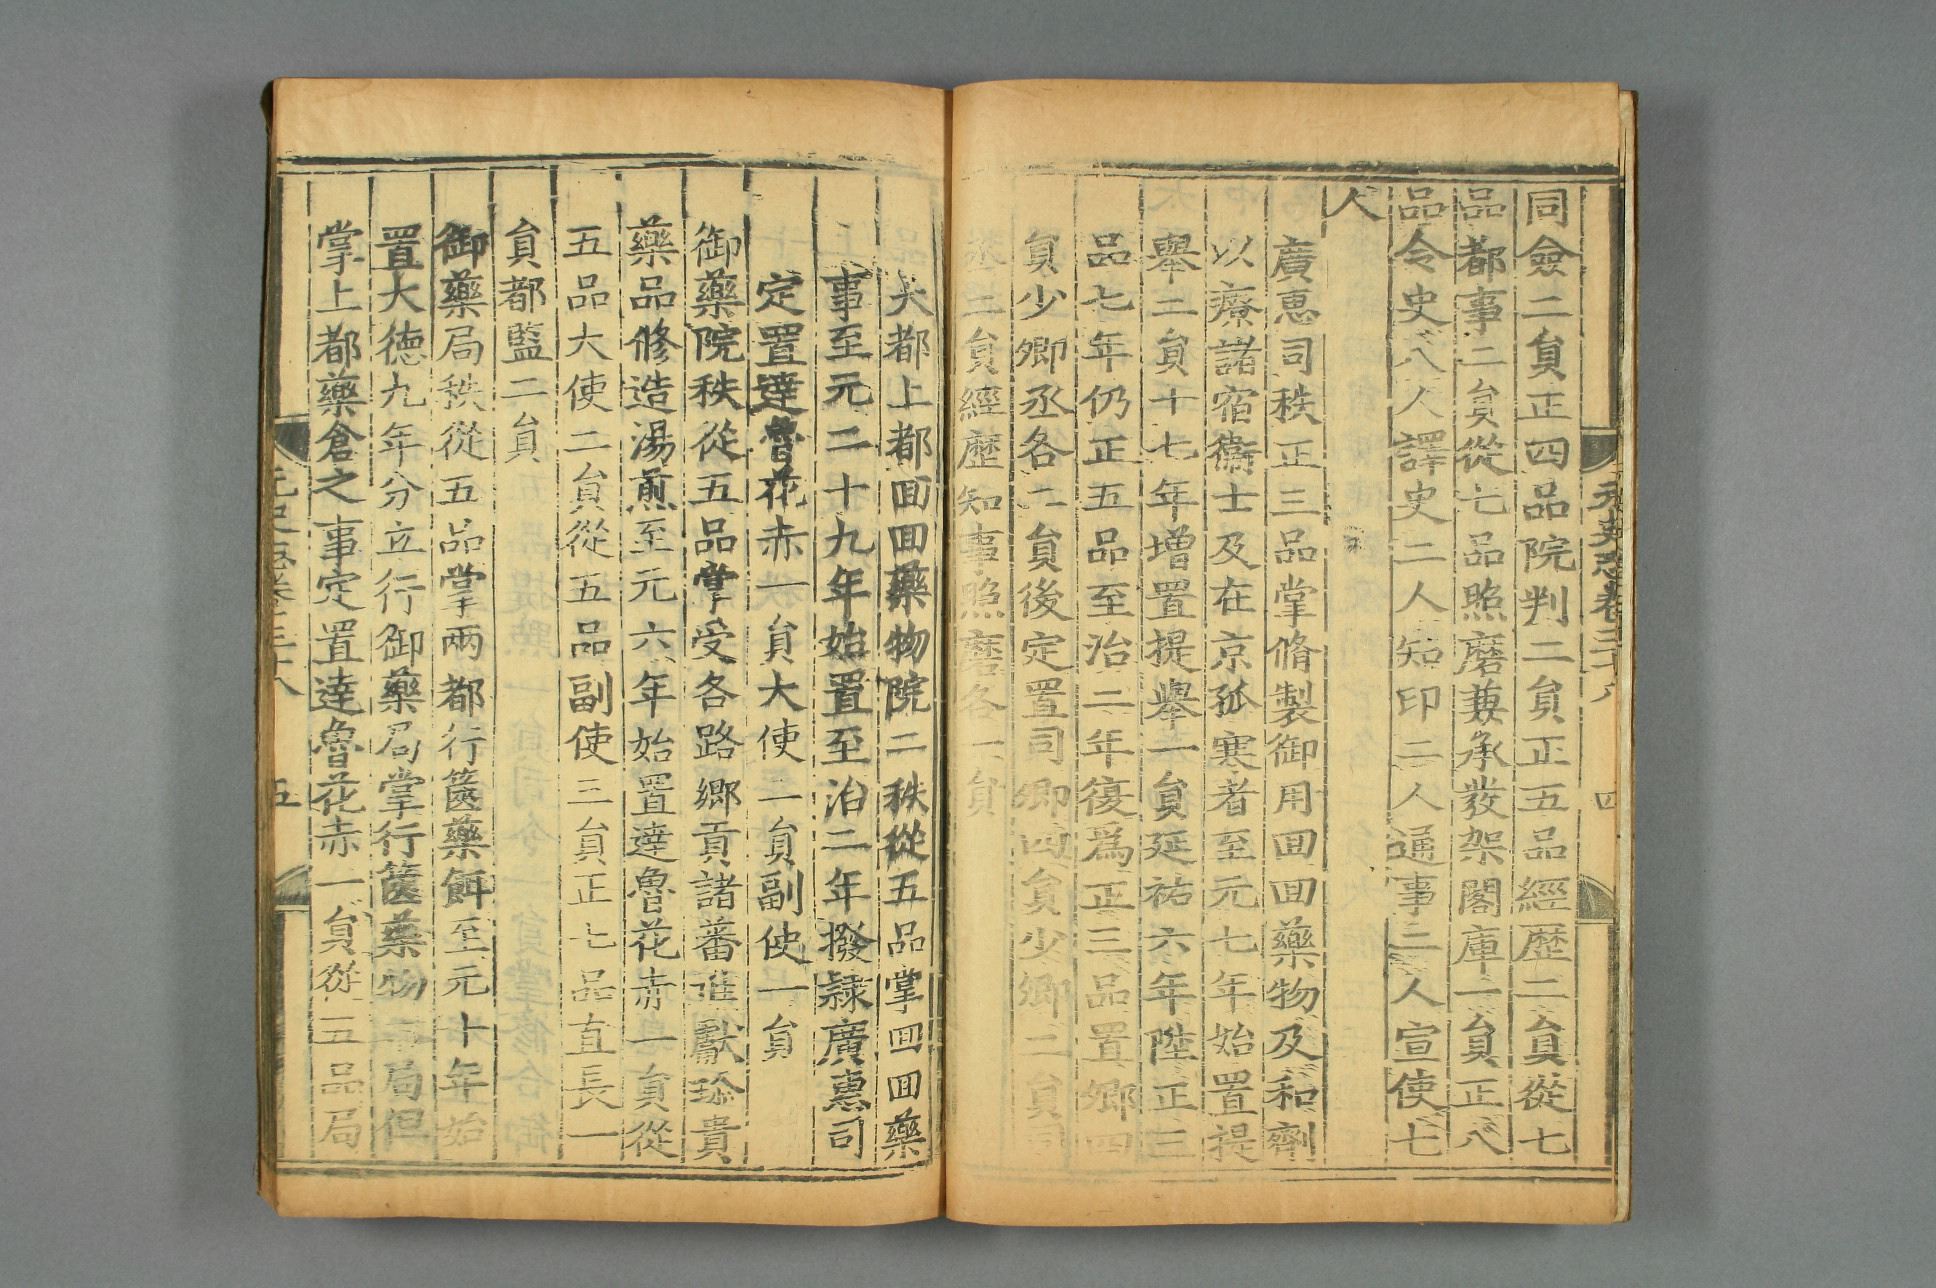 同僉二貟正四品院判二貟正五品經歷二貟從七
品都事二貟從七品照磨兼承發架閣庫一貟正八
品令史八人譯史二人知印二人通事二人宣使七
人
廣惠司秩正三品掌脩製御用囬囬藥物及和劑
以療諸宿衛士及在京孤寒者至元七年始置提
舉二貟十七年增置提舉一貟延祐六年陞正三
品七年仍正五品至治二年復爲正三品置卿四
貟少卿丞各二貟後定置司卿四貟少卿二貟司
丞二貟經歷知事照磨各一貟
元史志卷三十八
四
大都上都囬囬藥物院二秩從五品掌囬囬藥
事至元二十九年始置至治二年撥隸廣惠司
定置達魯花赤一貟大使二貟副使一貟
御藥院秩從五品掌受各路鄉貢諸蕃進獻珍貴
藥品修造湯煎至元六年始置達魯花赤一貟從
五品大使二貟從五品副使三貟正七品直長一
貟都監二貟
御藥局秩從五品掌兩都行篋藥餌至元十年始
置大德九年分立行御藥局掌行篋藥物本局但
掌上都藥倉之事定置達魯花赤一貟從五品局
元史志卷三十八
五